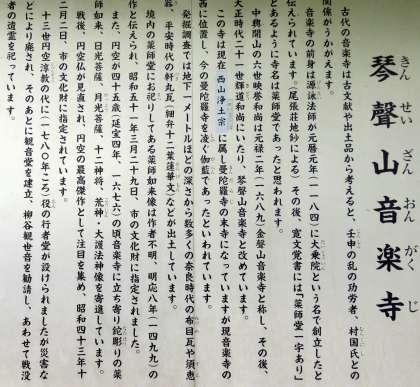 琴聲山音楽寺
きんせいざんおんがくじ
古代の音楽寺は古文献や出土品から考えると、壬申の乱の功労者、村国氏との
関係がうかがえます。
音楽寺の前身は源祐法師が元暦元年(一一八四)に大乗院という名で創立したと
伝えられています。(尾張荘地鈔による)その後、寛文覚書には「薬師堂一宇あり」
とあるように寺名は薬師堂であったと思われます。
中興開山の六世映誉和尚は元禄二年(一六八九)金聲山音楽寺と称し、その後、
大正時代二十一世輝道和尚にいたり、琴聲山音楽寺と改めています。
この寺は現在西山浄土宗に属し曼陀羅寺の末寺になっていますが現音楽寺の
西に位置し、今の曼陀羅寺を凌ぐ伽藍であったといわれています。
発掘調査では地下一メートルほどの深さから数多くの奈良時代の布目瓦や須恵
器、平安時代の軒丸瓦(細弁十二葉蓮華文)などが出土しています。
境内の薬師堂にお祀りしてある薬師如来像は作者不明、明応八年(一四九九)の
作と伝えられ、昭和五十一年三月二十九日、市の文化財に指定されました。
また、円空が四十五歳(延宝四年、一六七六)の頃音楽寺に立ち寄り鉈彫りの薬
師如来、日光菩薩、月光菩薩、十二神将、荒神・大護法神像を寄進しています。
戦後、円空仏が見直され、円空の最高傑作として注目を集め、昭和四十三年十
二月二日、市の文化財に指定されています。
十三世円空淳教の代に(一七八〇年ごろ)役の行者堂が設けられましたが災害な
どにより廃され、そのあとに観音堂を建立、柳谷観世音を勧請し、あわせて戦没
者の遺霊を祀っています。